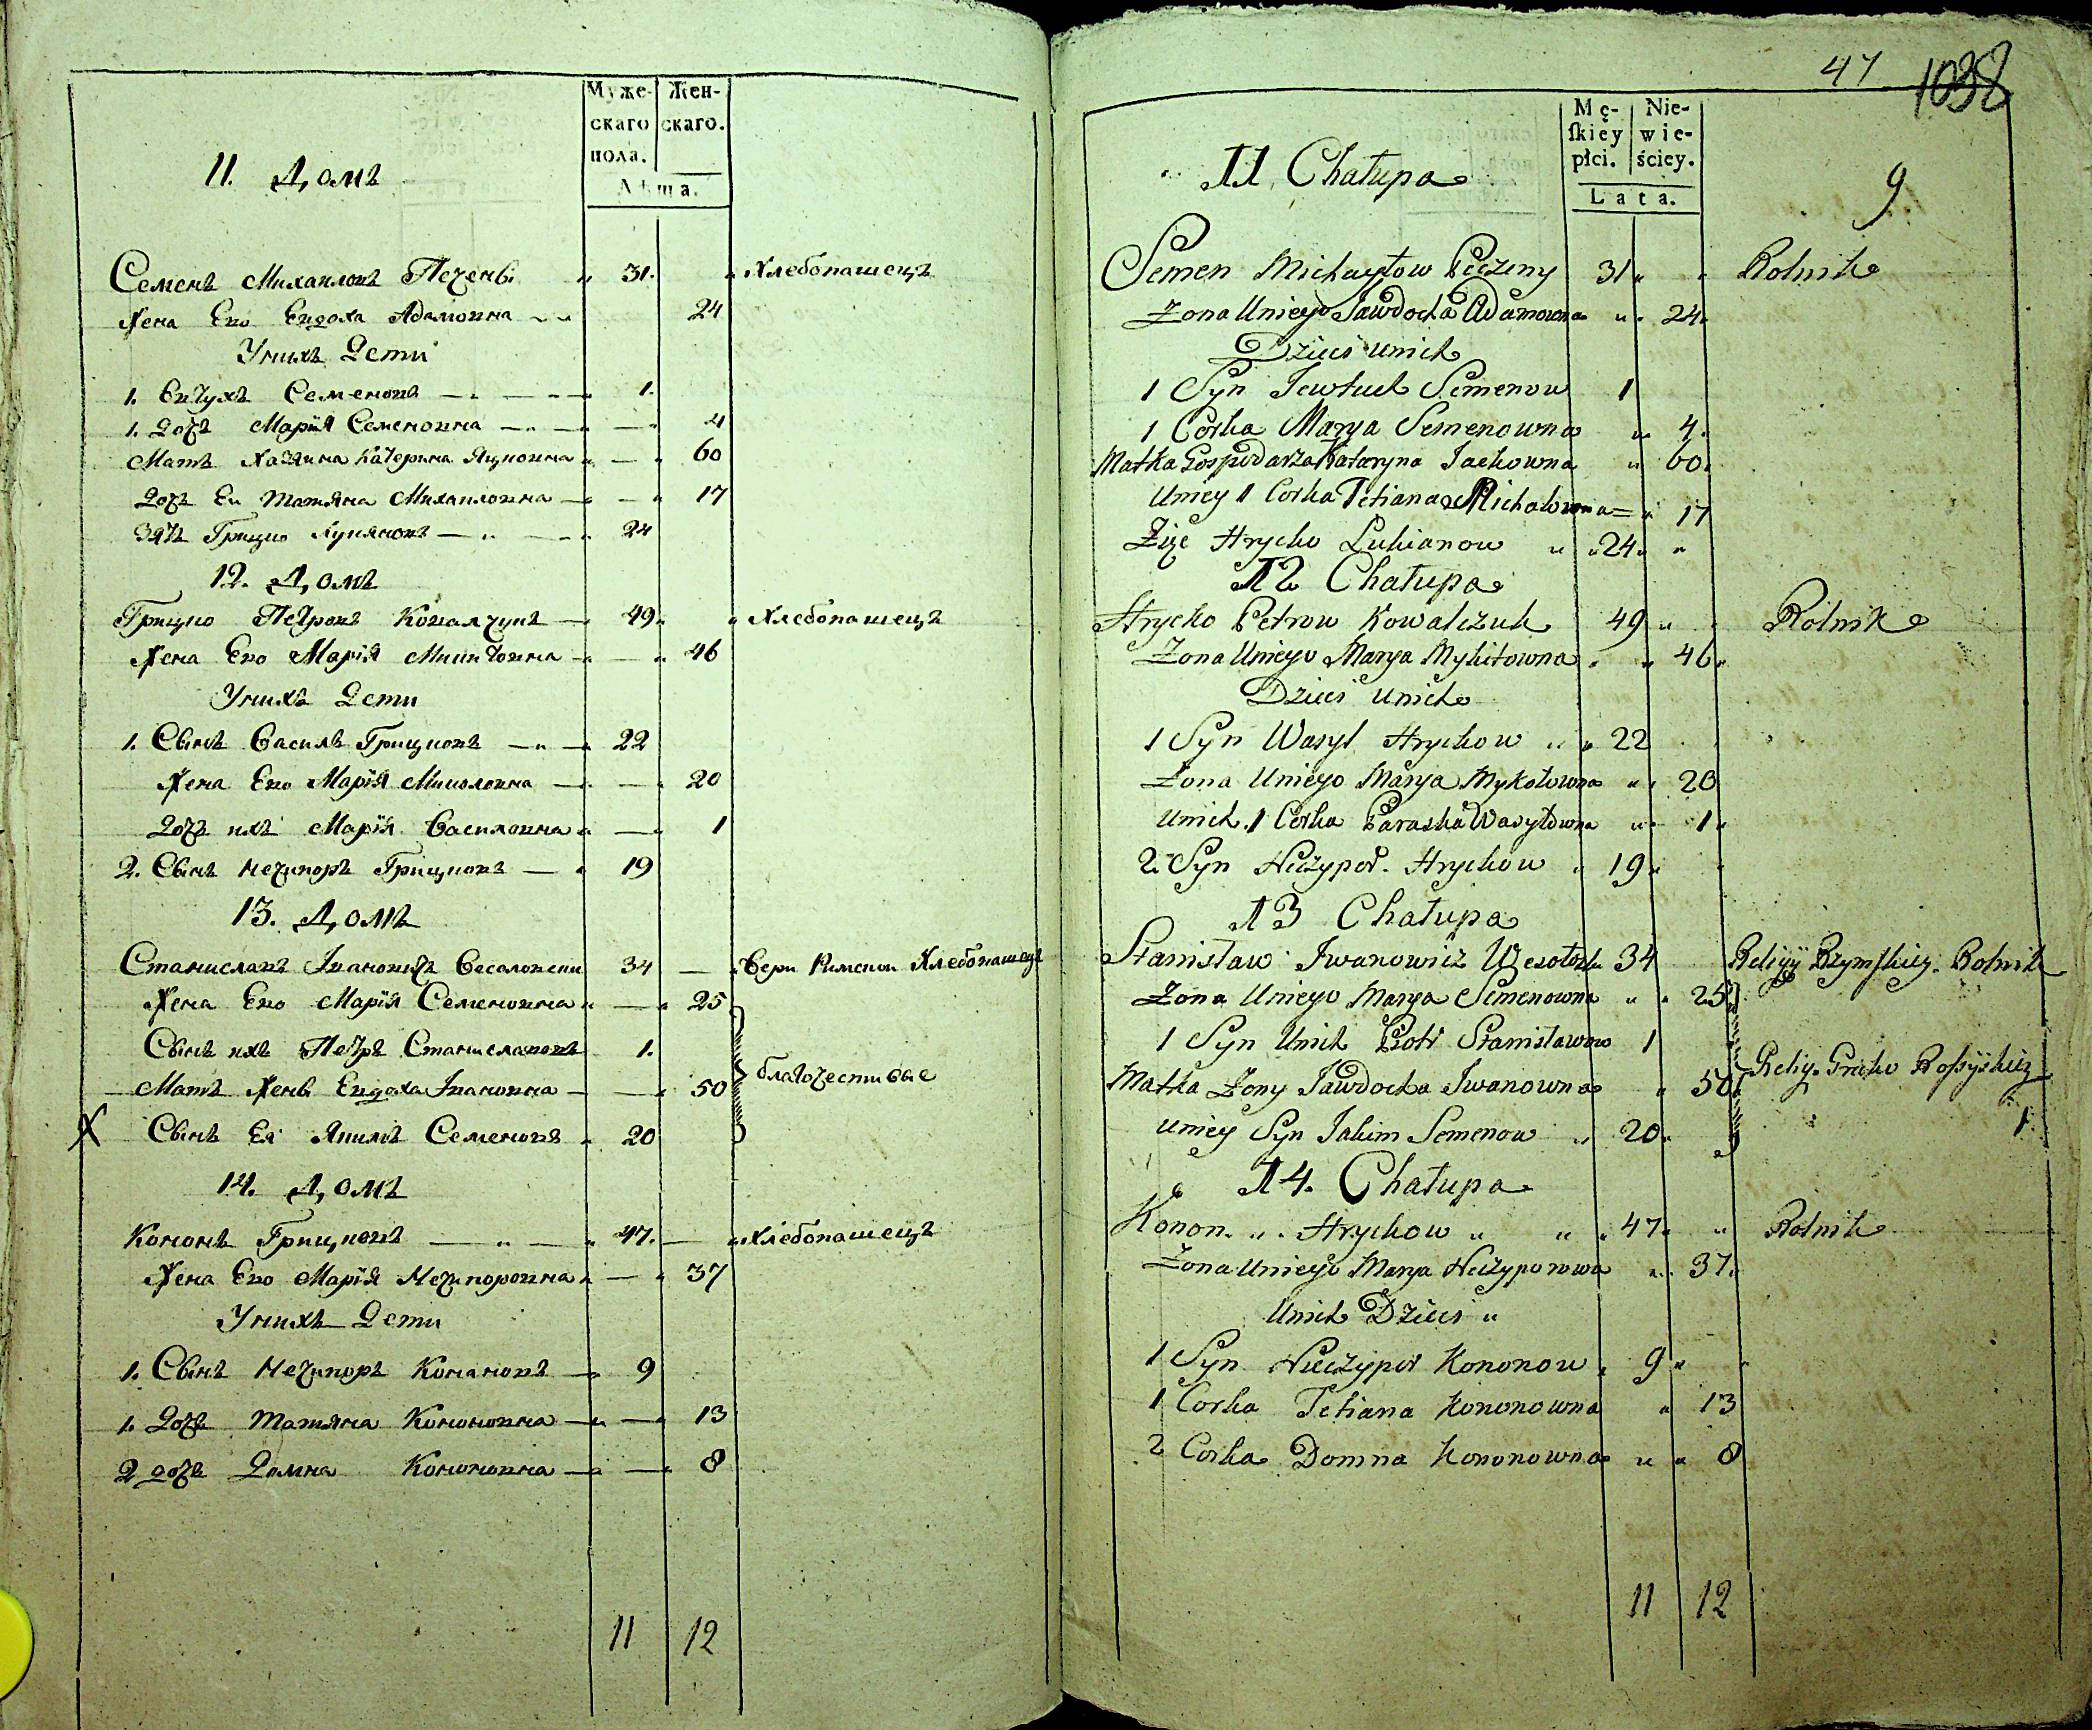 Муже- Жен-
скаго скаго.
пола.
Лѣта.
11. Домъ
Семенъ Михаиловъ Печены " 31. " Хлебопашецъ
Жена Его Евдоха Адамовна 24
Унихъ Дети
1. Евтухъ Семеновъ 1.
1. Дочь Марія Семеновна 4
Мать Хазяина Катерина Яцковна 60
Дочь Ея Татяна Михаиловна 17
Зять Грицко Лукяновъ 24
12. Домъ
Грицко Петровъ Ковалчукъ 49 " Хлебопашецъ
Жена Его Марія Микитовна 46
Унихъ Дети
1. Сынъ Василь Грицковъ 22
Жена Его Марія Миколовна 20
Дочь ихъ Марія Василовна 1
2. Сынъ Нечипоръ Грицковъ 19
13. Домъ
Станиславъ Ивановичъ Весоловски 34 Вери Римской Хлебопашецъ
Жена Его Марія Семеновна 25
Сынъ ихъ Петръ Станиславовъ 1.
благочестивые
Мать Жены Евдоха Ивановна 50
X Сынъ Ея Якимъ Семеновъ 20
14. Домъ
Кононъ Грицковъ 47. Хлебопашецъ
Жена Его Марія Нечипоровна 37
Унихъ Дети
1. Сынъ Нечипоръ Кононовъ 9
1. Дочь Татяна Кононовна 13
2 дочь Домна Кононовна 8
11 12
47 1038
Mę- Nie-
skiey wie-
płci. ściey.
Lata.
9
11 Chałupa
Semen Michayłow Peczeny 31 " " Rolnik
Zona Uniego Jawdocha Adamowna " 24
Dzieci unich
1 Syn Jewtuch Semenow 1
1 Corka Marya Semenowna " 4.
Matka Gospodarza Kataryna Jackowna " 60
Uniey 1 Corka Tetiana Michałowna " 17
Zięc Hrycko Lukianow " 24 "
12 Chałupa
Hrycko Petrow Kowalczuk 49 " Rolnik
Zona Uniego Marya Mykitowna " 46
Dzieci unich
1 Syn Wasyl Hryckow " 22
Zona Uniego Marya Mykołowna " 20
Unich 1 Corka Paraska Wasylowna " 1
2 Syn Neczypor Hryckow " 19
13 Chałupa
Stanisław Iwanowicz Wesołoski 34 Religij Rzymskiey Rolnik
Zona Uniego Marya Semenowna " 25
1 Syn Unich Piotr Stanisławow 1
Relig. Greko Rossyiskiey
Matka Zony Jawdocha Iwanowna " 50
Uniey Syn Jakim Semenow " 20
14. Chałupa
Konon " Hryckow " " 47 " Rolnik
Zona Uniego Marya Neczyporowa " 37
Unich Dzieci "
1 Syn Neczypor Kononow 9
1 Corka Tetiana Kononowna " 13
2 Corka Domna Kononowna " 8
11 12